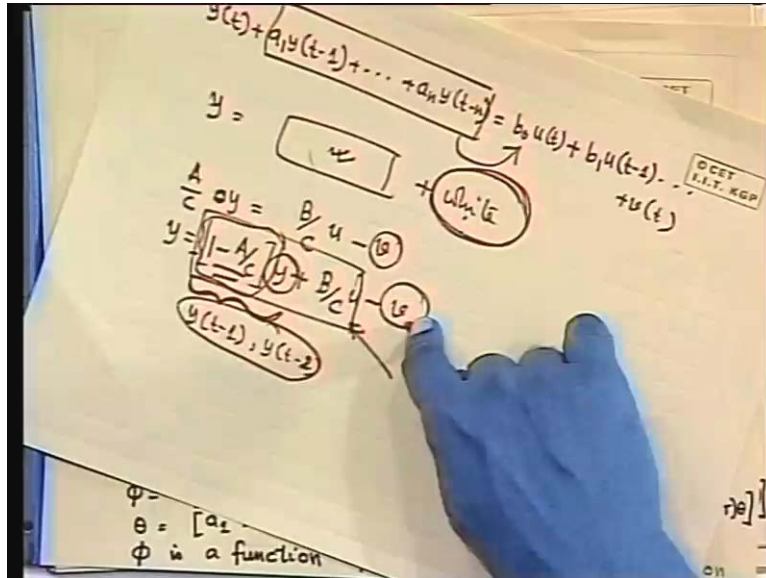 y(t) + a₁y(t-1) + ... + aₙy(t-n) = b₀u(t) + b₁u(t-1) ...
+ v(t)
©CET
I.I.T. KGP
y = + white
A/C y = B/C u - v
y = [1 - A/C] y + B/C u - v
y(t-1), y(t-2
φ=
θ = [a₁
φ is a function
r)θ]
on